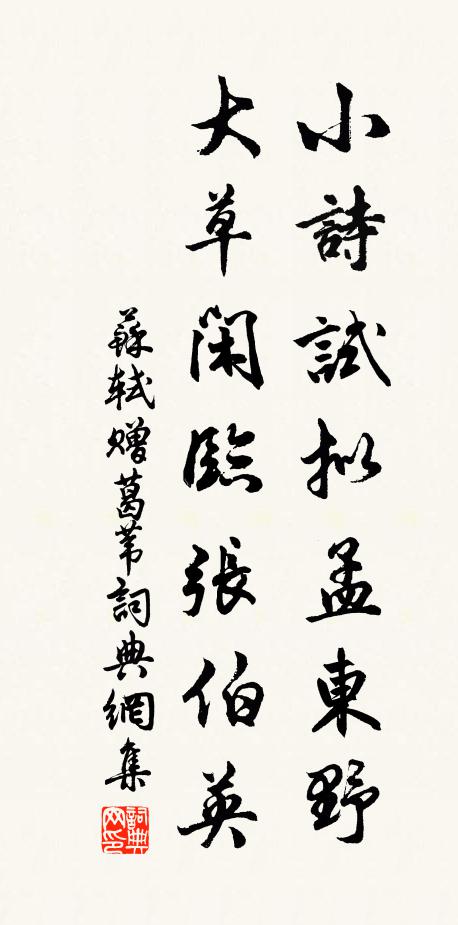 小詩試擬孟東野
大草閑臨張伯英
蘇軾贈葛葦詞典網集
詞典网印